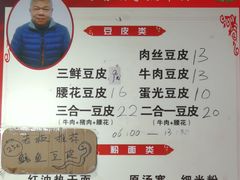 豆皮类
肉丝豆皮 13
三鲜豆皮 牛肉豆皮 13
腰花豆皮 16 蛋光豆皮 10
三合一豆皮 22 二合一豆皮 20
(牛肉+猪肉+腰花) (牛肉+腰花)
06:00—13:30
老板推荐
鱿鱼豆皮
粉面类
红油热干面 原汤宽、细米粉